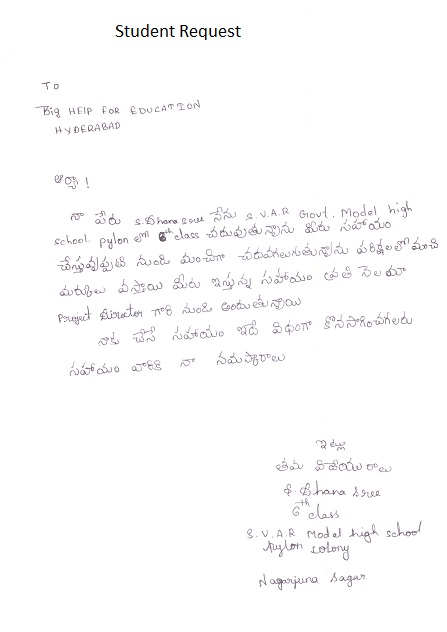 Student Request
To
Big HELP FOR EDUCATION
HYDERABAD
ఆర్యా !
నా పేరు S.Dhana sree నేను S.V.A.R Govt. Model high
school. pylon లో 6th class చదువుతున్నాను మీరు సహాయం
చేస్తున్నప్పటి నుండి మంచిగా చదువగలుగుతున్నాను పరీక్షలలో మంచి
మార్కులు వస్తాయి మీరు ఇస్తున్న సహాయం ప్రతి నెల మా
Project Director గారి నుండి అందుతున్నాయి
నాకు చేసే సహాయం ఇదే విధంగా కొనసాగించగలరు
సహాయం వారికి నా నమస్కారాలు
ఇట్లు
తమ విధేయురాలు
S. Dhana sree
6th class
S.V.A.R Model high school
Pylon colony
Nagarjuna Sagar